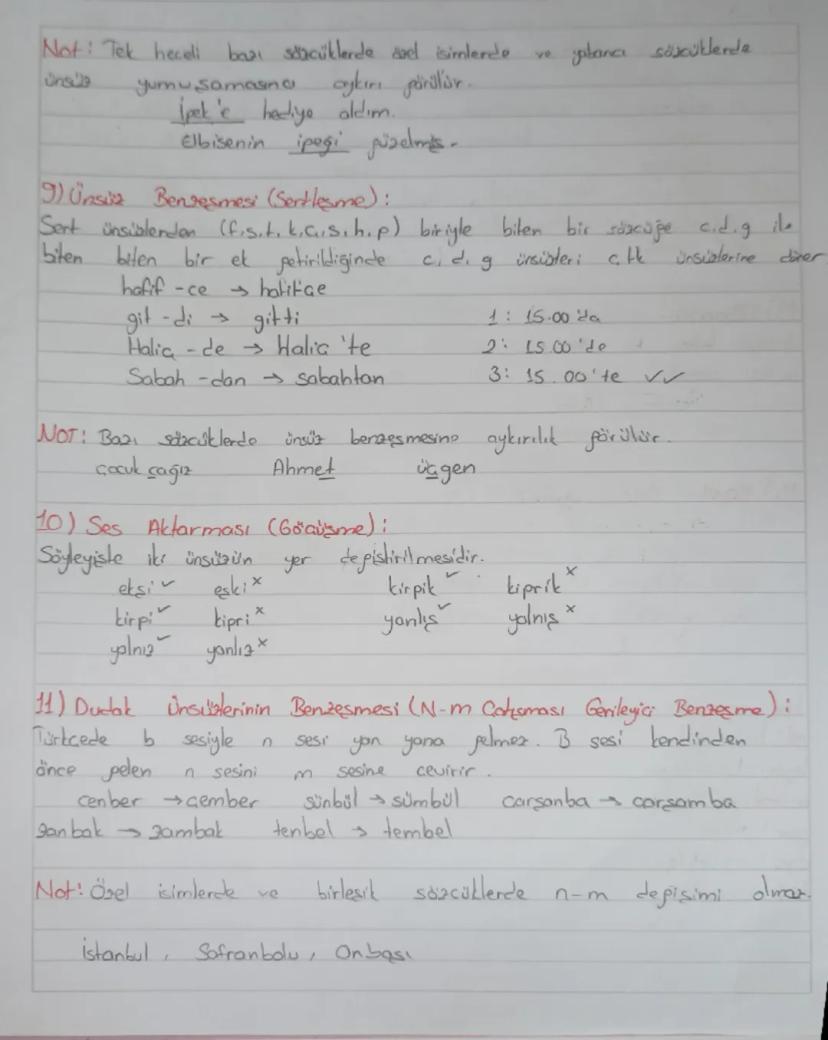 Not: Tek heceli bazı sözcüklerde özel isimlerde ve yabancı sözcüklerde
ünsüz yumuşamasına aykırı görülür.
İpek'e hediye aldım.
Elbisenin ipeği güzelmiş.
9) Ünsüz Benzeşmesi (Sertleşme):
Sert ünsüzlerden (f,s,t,k,ç,ş,h,p) biriyle biten bir sözcüğe c,d,g ile
biten biten bir ek getirildiğinde c,d,g ünsüzleri ç,t,k ünsüzlerine döner
hafif -ce → hafifçe
git -di → gitti 1: 15.00'da
Haliç -de → Haliç'te 2: 15.00'de
Sabah -dan → sabahtan 3: 15.00'te ✓✓
NOT: Bazı sözcüklerde ünsüz benzeşmesine aykırılık görülür.
çocuk çağız Ahmet üçgen
10) Ses Aktarması (Göçüşme):
Söyleyişte iki ünsüzün yer değiştirilmesidir.
ekşi ✓ eşki x kirpik ✓ kiprik x
kirpi ✓ kipri x yanlış ✓ yalnış x
yalnız ✓ yanlız x
11) Dudak Ünsüzlerinin Benzeşmesi (N-m Çatışması Gerileyici Benzeşme):
Türkçede b sesiyle n sesi yan yana gelmez. B sesi kendinden
önce gelen n sesini m sesine çevirir.
çenber → çember sünbül → sümbül çarşanba → çarşamba
zanbak → zambak tenbel → tembel
Not: Özel isimlerde ve birleşik sözcüklerde n-m değişimi olmaz.
İstanbul, Safranbolu, Onbaşı